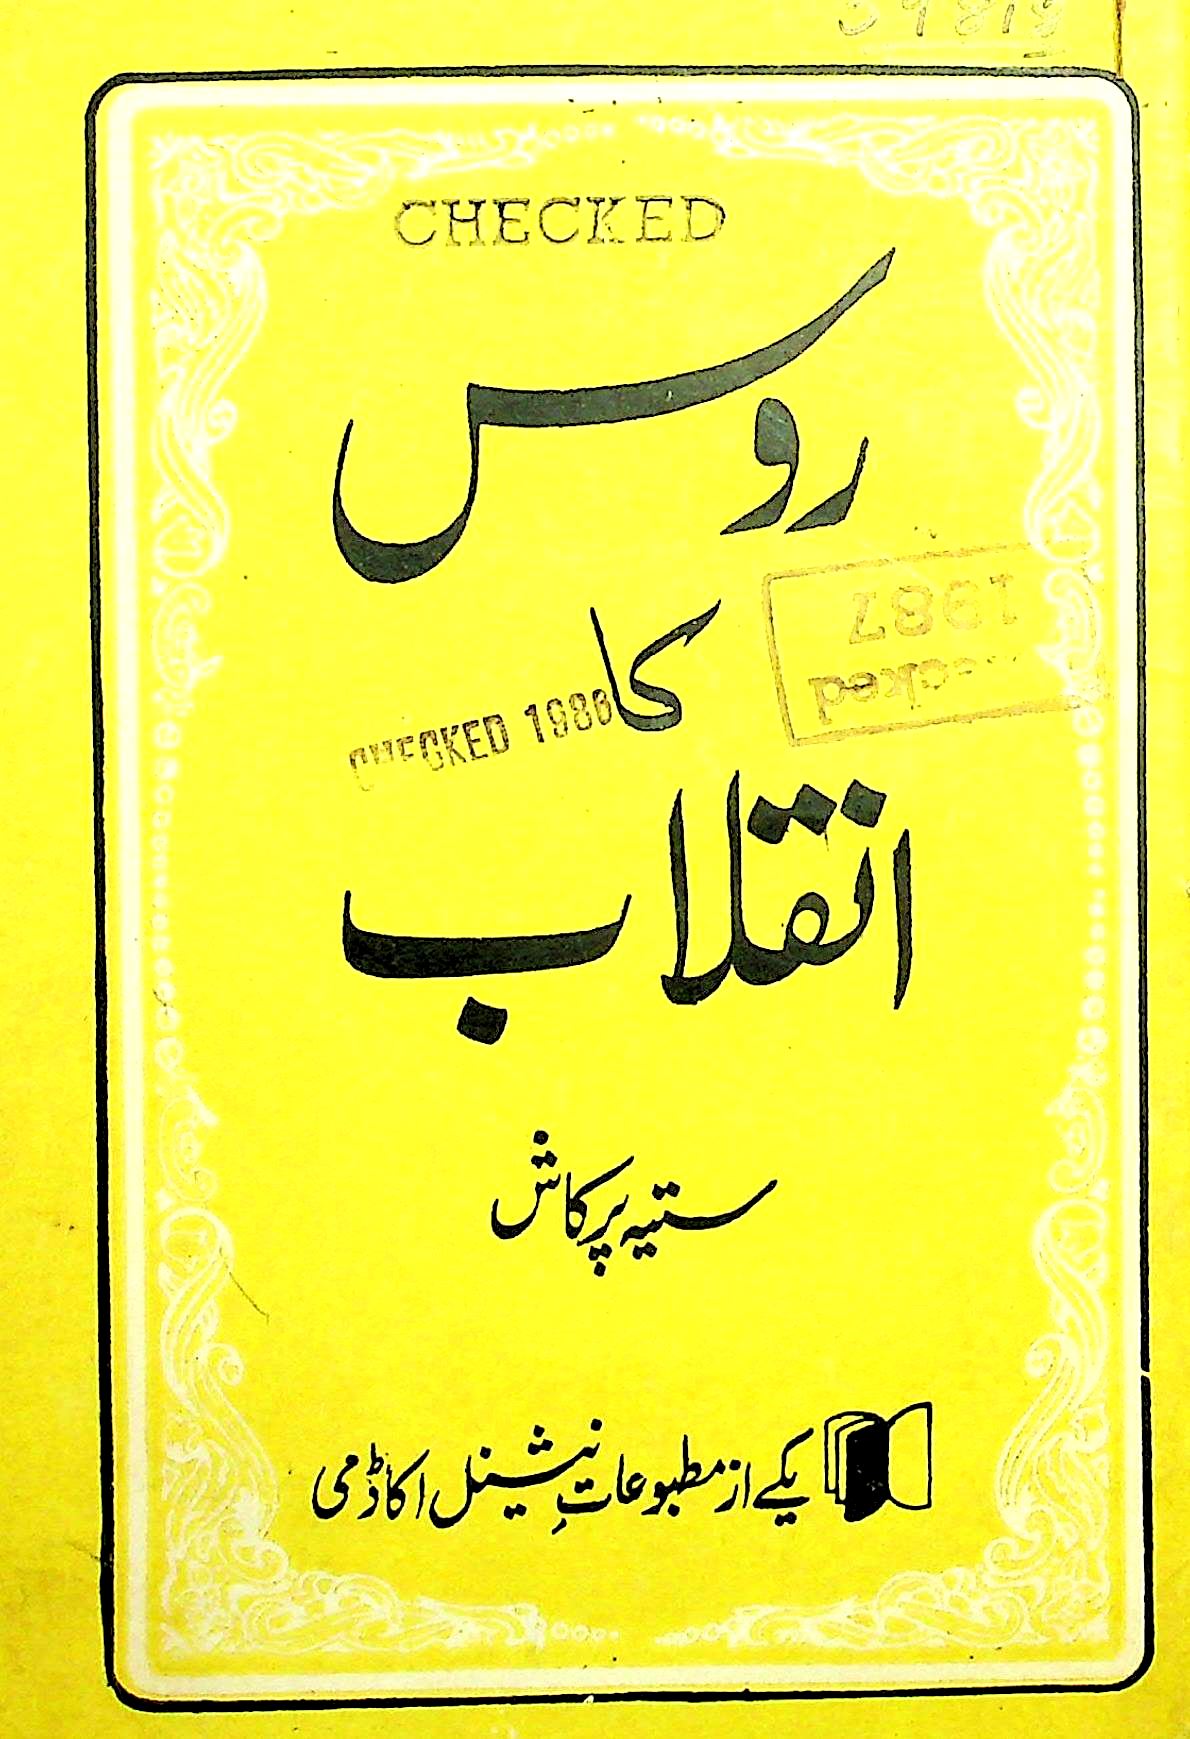 CHECKED
روس
کا
CHECKED 1986
Checked
1987
انقلاب
ستیہ پرکاش
یکے از مطبوعاتِ نیشنل اکاڈمی